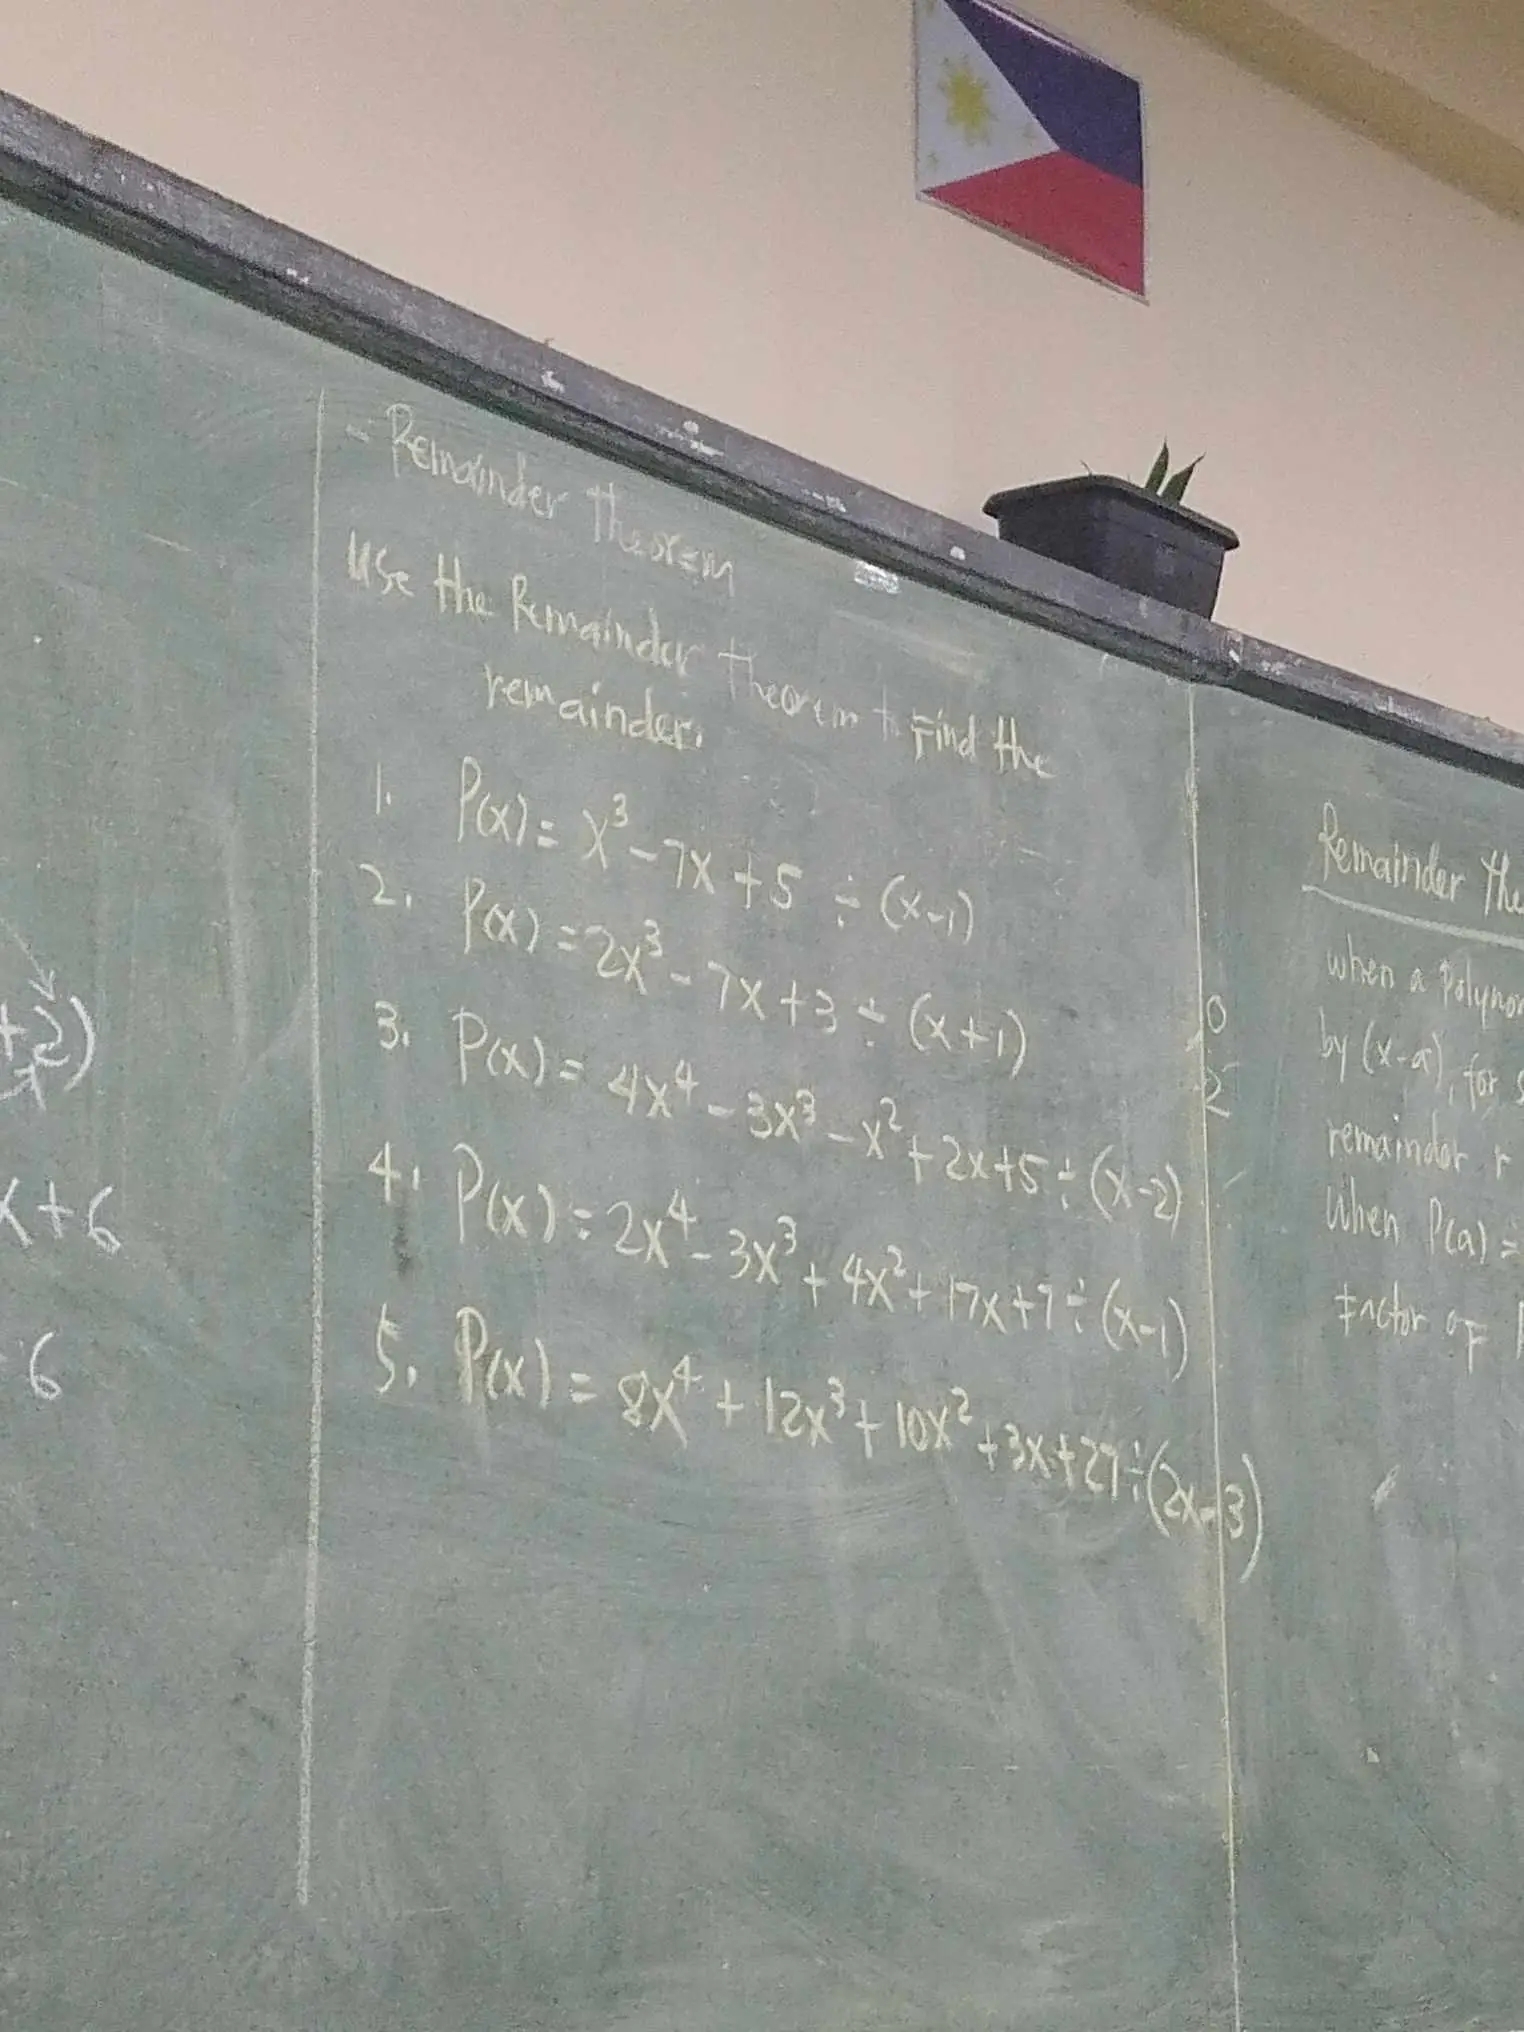 +2)
x+6
6
- Remainder Theorem
Use the Remainder theorem to Find the
remainder.
1. P(x) = x³ - 7x + 5 ÷ (x-1)
2. P(x) = 2x³ - 7x + 3 ÷ (x+1)
3. P(x) = 4x⁴ - 3x³ - x² + 2x + 5 ÷ (x-2)
4. P(x) = 2x⁴ - 3x³ + 4x² + 17x + 7 ÷ (x-1)
5. P(x) = 8x⁴ + 12x³ + 10x² + 3x + 27 ÷ (2x-3)
0
2
Remainder The
when a Polynom
by (x-a), for
remainder r
When P(a) =
Factor of